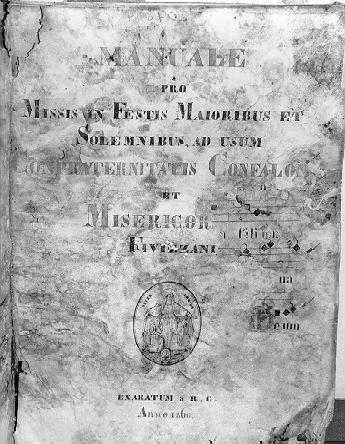 MANUALE
PRO
MISSIS IN FESTIS MAIORIBUS ET
SOLEMNIBUS, AD USUM
CONFRATERNITATIS CONFALON
ET
MISERICOR
FIVIZZANI
na
EXARATUM a R. C.
Anno 1860.